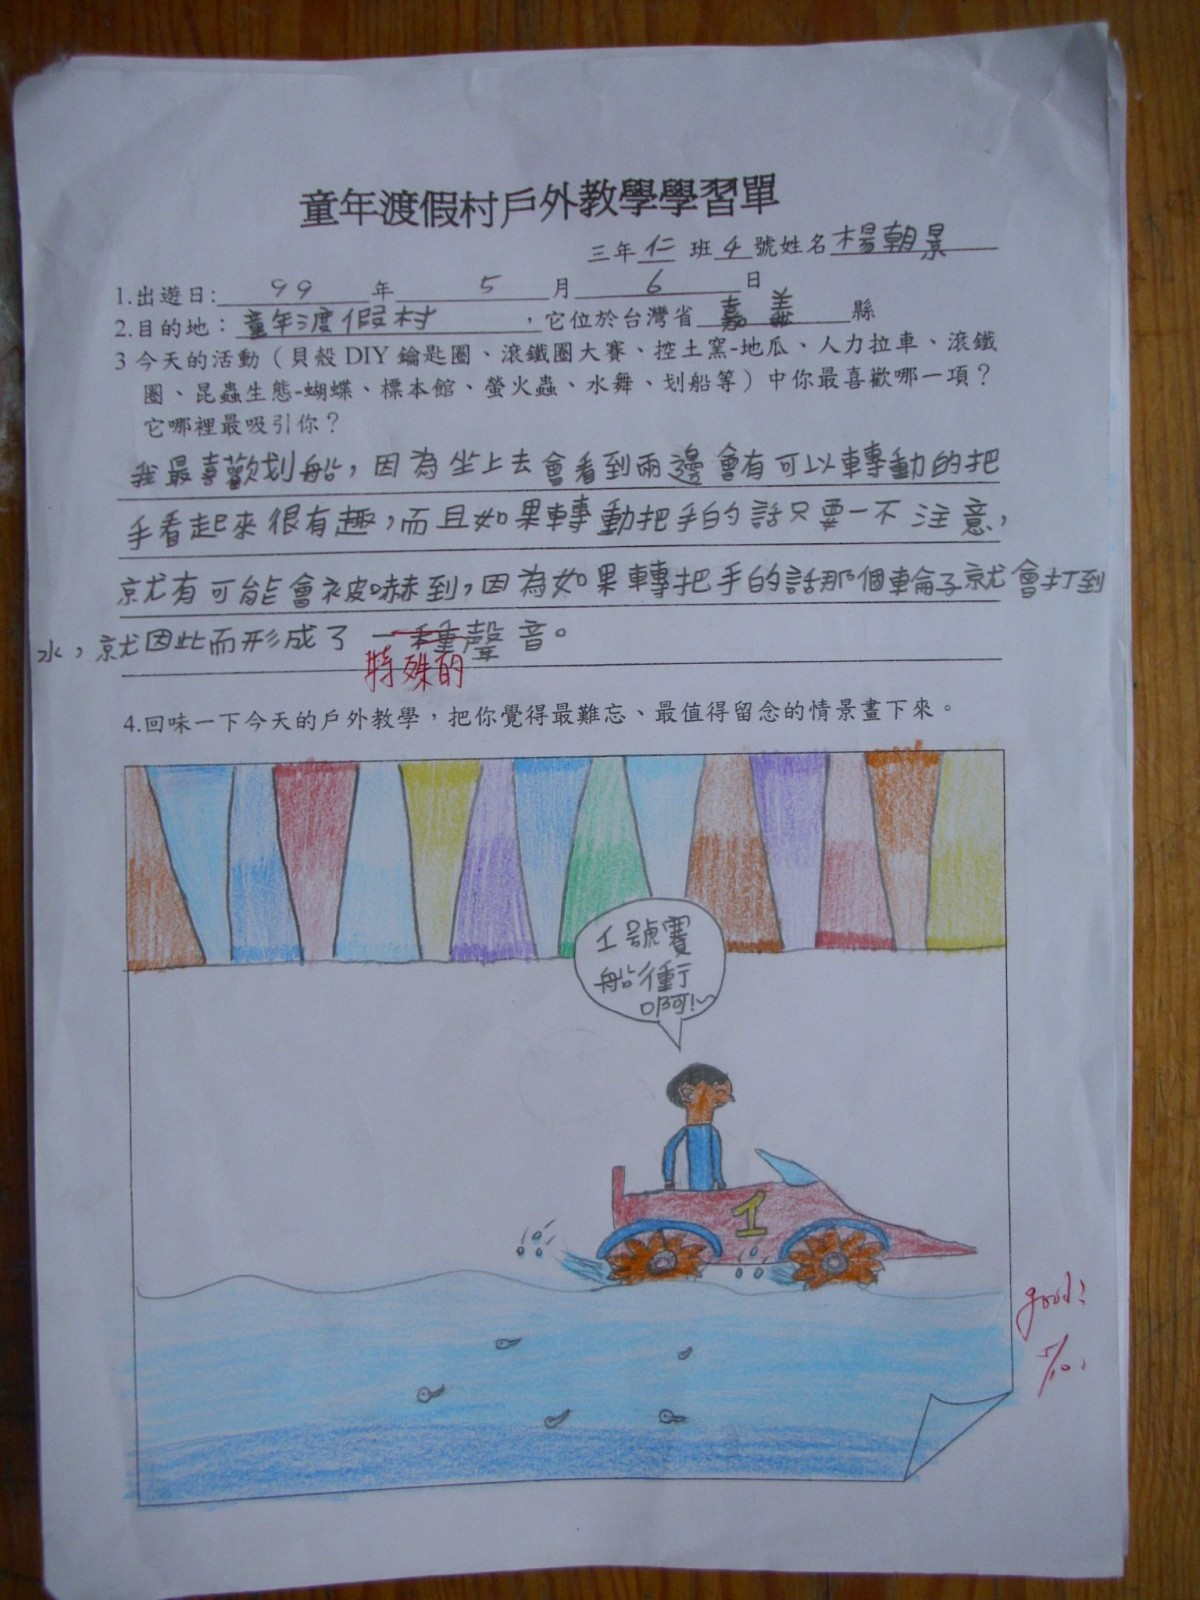 童年渡假村戶外教學學習單
三年仁班4號姓名楊朝景
1.出遊日:99年5月6日
2.目的地：童年渡假村，它位於台灣省嘉義縣
3 今天的活動（貝殼 DIY 鑰匙圈、滾鐵圈大賽、控土窯-地瓜、人力拉車、滾鐵
圈、昆蟲生態-蝴蝶、標本館、螢火蟲、水舞、划船等）中你最喜歡哪一項？
它哪裡最吸引你？
我最喜歡划船，因為坐上去會看到兩邊會有可以轉動的把
手看起來很有趣，而且如果轉動把手的話只要一不注意，
就有可能會被嚇到，因為如果轉把手的話那個輪子就會打到
水，就因此而形成了一種聲音。
特殊的
4.回味一下今天的戶外教學，把你覺得最難忘、最值得留念的情景畫下來。
1號賽
船衝
啊!~
1
good!
5/10